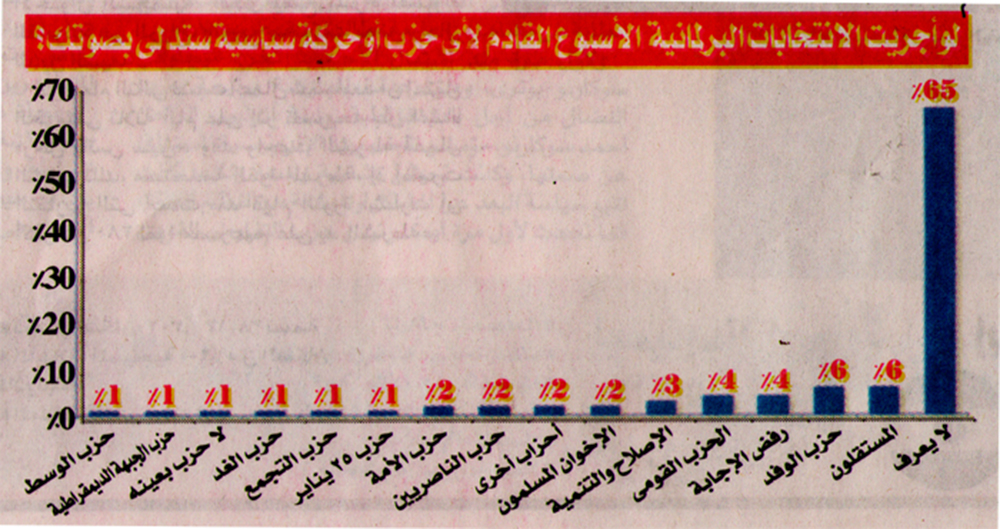 لو أجريت الانتخابات البرلمانية الأسبوع القادم لأى حزب أو حركة سياسية ستدلى بصوتك؟
٪70
٪60
٪50
٪40
٪30
٪20
٪10
٪0
٪65
٪6
٪6
٪4
٪4
٪3
٪2
٪2
٪2
٪2
٪1
٪1
٪1
٪1
٪1
٪1
لا يعرف
المستقلون
حزب الوفد
رفض الاجابة
الحزب القومى
الاصلاح والتنمية
الاخوان المسلمون
أحزاب أخرى
حزب الناصريين
حزب الأمة
حزب ٢٥ يناير
حزب التجمع
حزب الغد
لا حزب بعينه
حزب الجبهة الديمقراطية
حزب الوسط